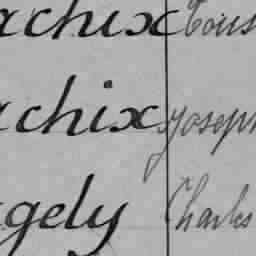 achix Louis
achix Joseph
gely Charles